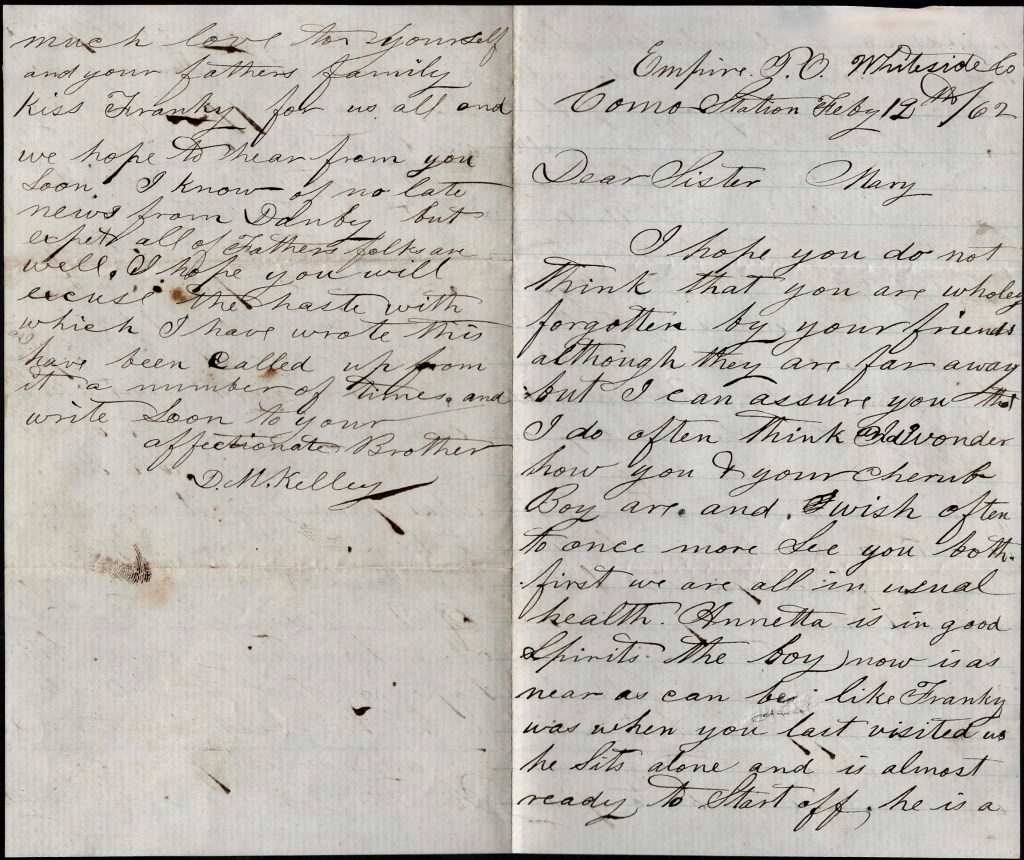 much love to yourself
and your fathers family
Kiss Franky for us all and
we hope to hear from you
soon. I know of no late
news from Danby but
expet all of Fathers folks are
well. I hope you will
excuse the haste with
which I have wrote this
have been called up from
it a number of times. and
write soon to your
affectionate Brother
D. M. Kelley
Empire P.O. Whiteside Co
Como Station Feby 12th/62
Dear Sister Mary
I hope you do not
think that you are wholey
forgotten by your friends
although they are far away
but I can assure you that
I do often think and wonder
how you & your cherub
Boy are. and I wish often
to once more see you both.
first we are all in usual
health. Annetta is in good
Spirits the boy now is as
near as can be like Franky
was when you last visited us
he sits alone and is almost
ready to Start off, he is a